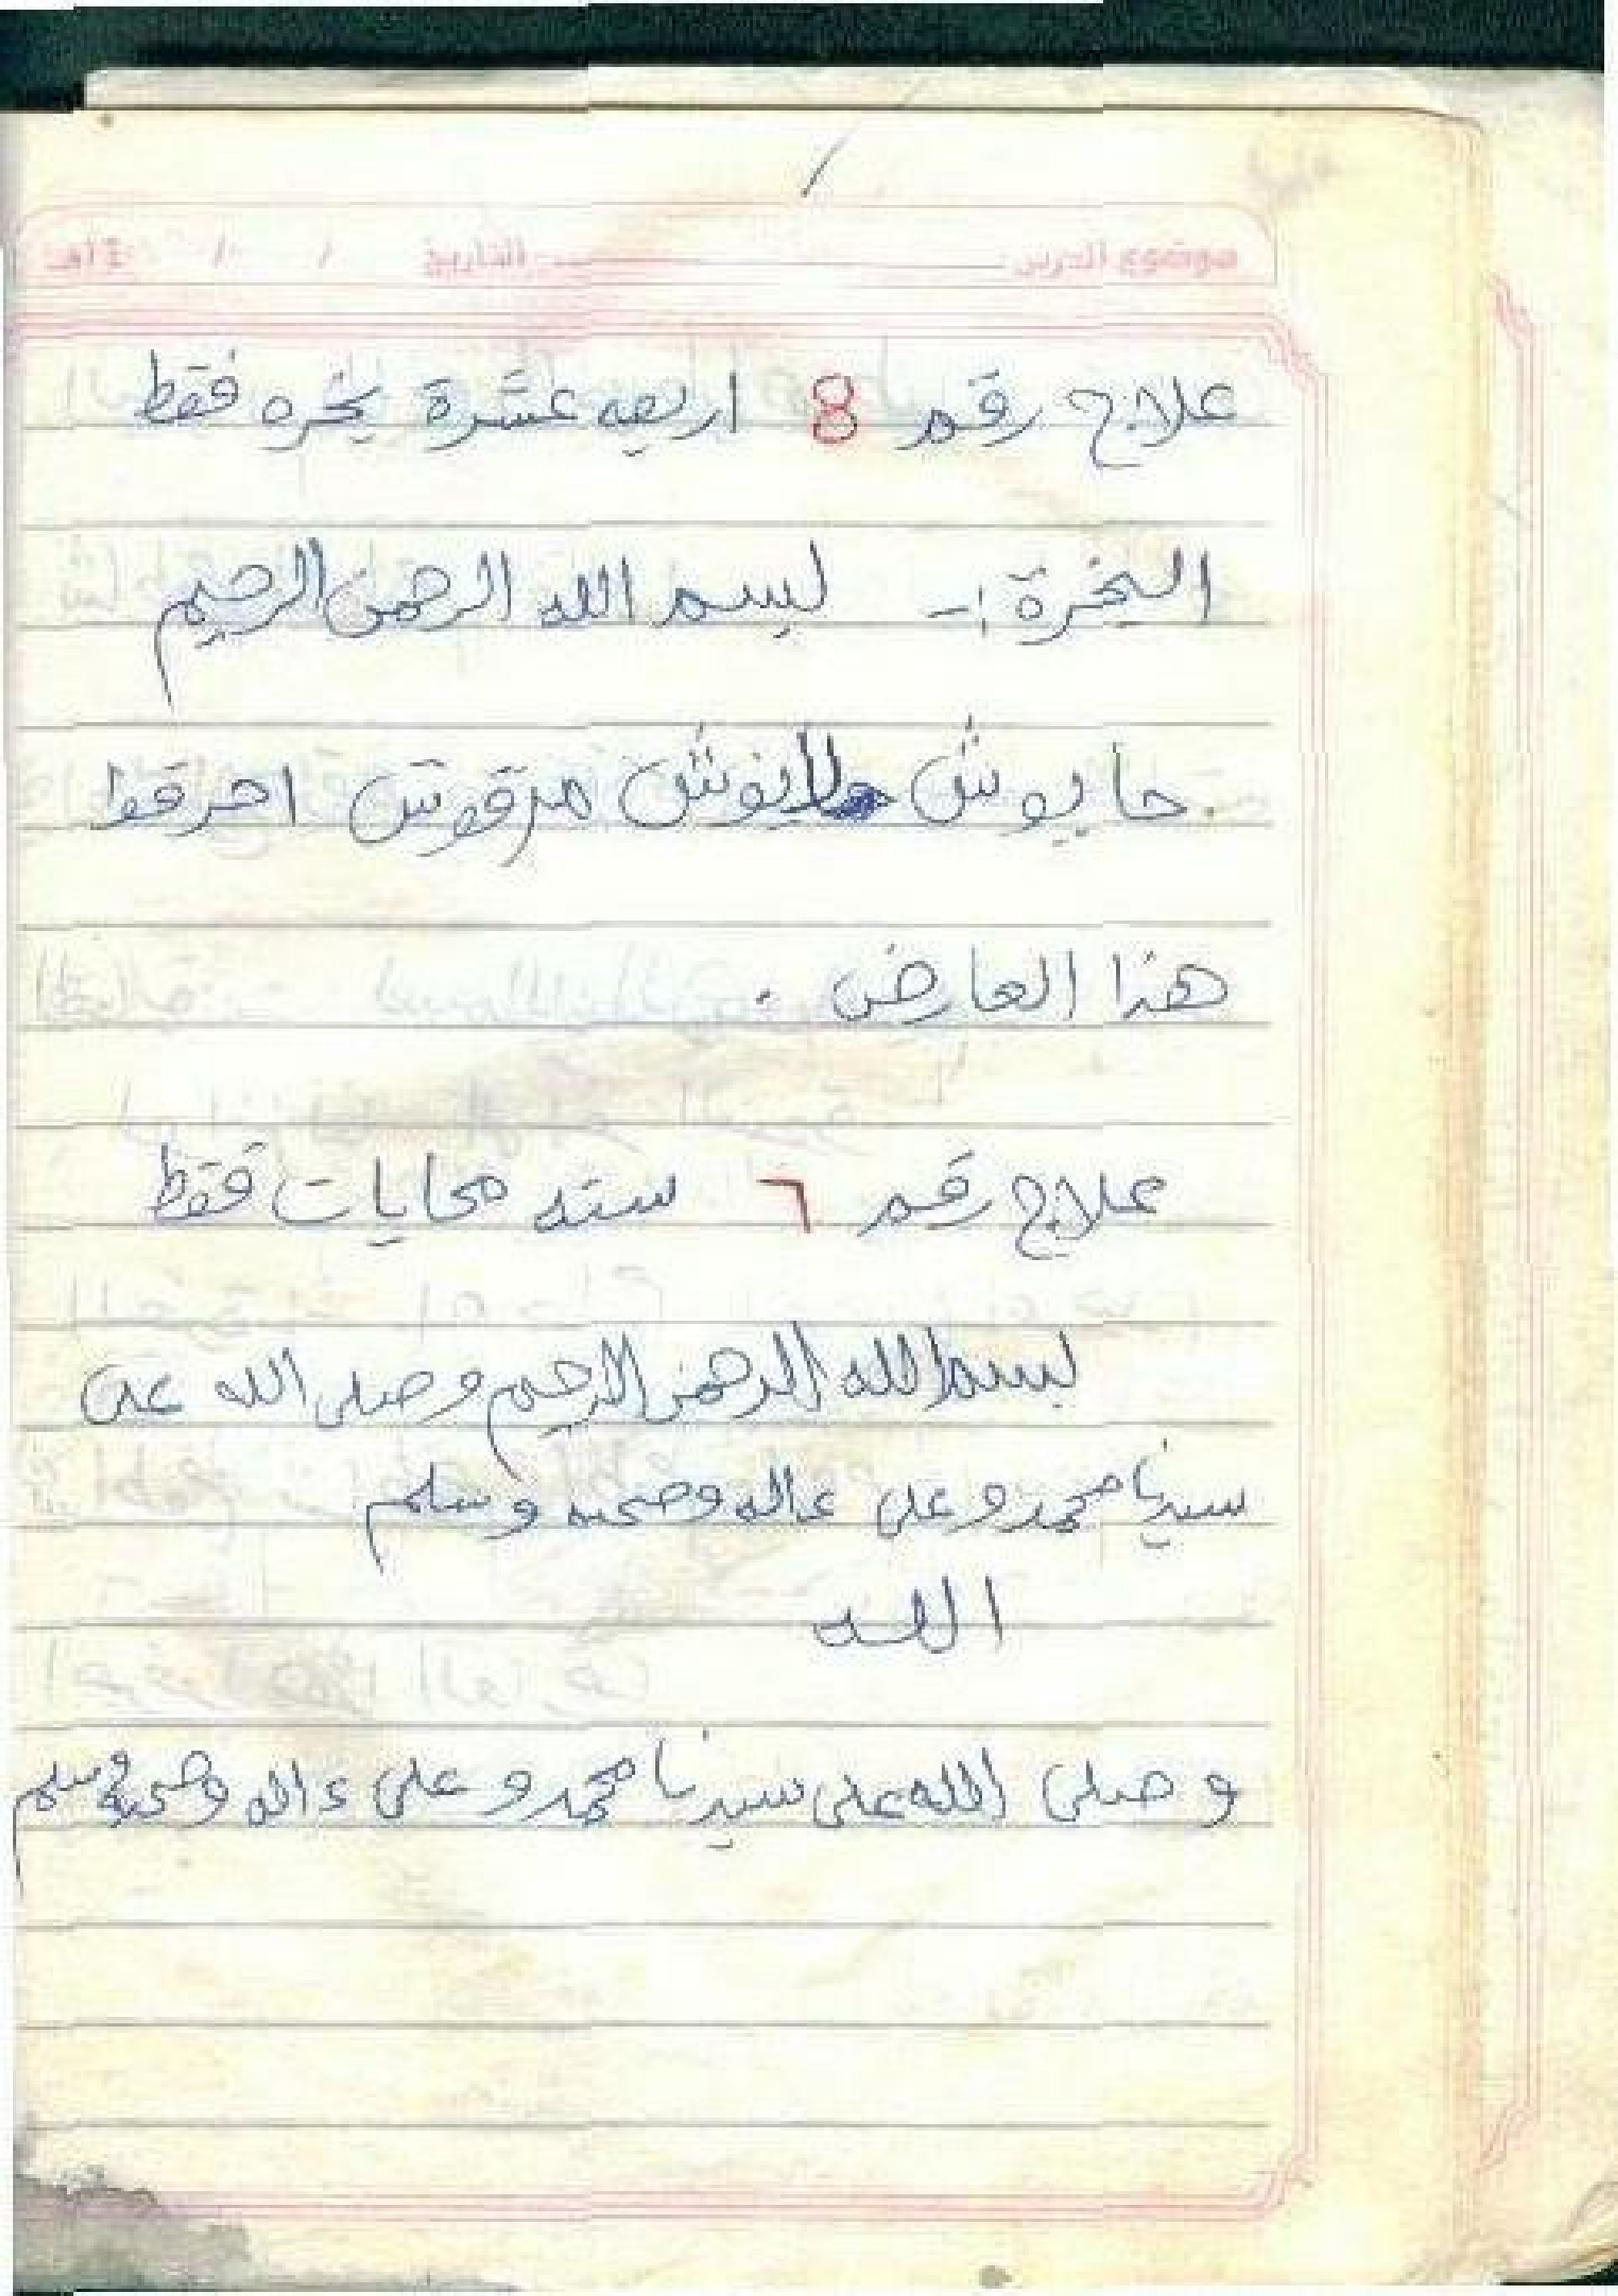 موضوع الدرس التاريخ / / ١٤هـ
علاج رقم 8 اربعه عشرة بخره فقط
البخرة :- بسم الله الرحمن الرحيم
حايوش مرقوش احرقو
هذا العارض .
علاج رقم ٦ سته محايات فقط
بسم الله الرحمن الرحيم وصلى الله على
سيدنا محمد وعلى ءاله وصحبه وسلم
الله
وصلى الله على سيدنا محمد وعلى ءاله وصحبه وسلم